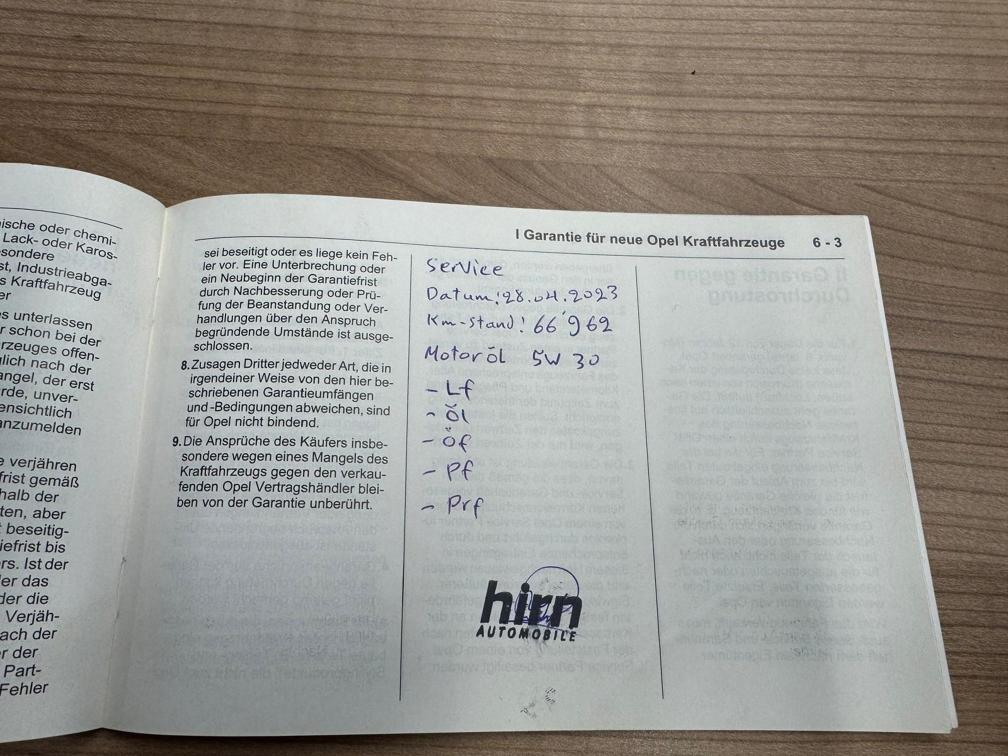 I Garantie für neue Opel Kraftfahrzeuge 6 - 3
ische oder chemi-
Lack- oder Karos-
sondere
st, Industrieabga-
s Kraftfahrzeug
er
es unterlassen
r schon bei der
rzeuges offen-
lich nach der
angel, der erst
rde, unver-
ensichtlich
anzumelden
e verjähren
frist gemäß
halb der
ten, aber
t beseitig-
iefrist bis
ers. Ist der
ler das
der die
Verjäh-
ach der
er der
Part-
Fehler
sei beseitigt oder es liege kein Feh-
ler vor. Eine Unterbrechung oder
ein Neubeginn der Garantiefrist
durch Nachbesserung oder Prü-
fung der Beanstandung oder Ver-
handlungen über den Anspruch
begründende Umstände ist ausge-
schlossen.
8. Zusagen Dritter jedweder Art, die in
irgendeiner Weise von den hier be-
schriebenen Garantieumfängen
und -Bedingungen abweichen, sind
für Opel nicht bindend.
9. Die Ansprüche des Käufers insbe-
sondere wegen eines Mangels des
Kraftfahrzeugs gegen den verkau-
fenden Opel Vertragshändler blei-
ben von der Garantie unberührt.
Service
Datum: 28.04.2023
Km-stand: 66'962
Motoröl 5W 30
- Lf
- Öl
- Öf
- Pf
- Prf
hirn
AUTOMOBILE
II Garantie gegen
Durchrostung